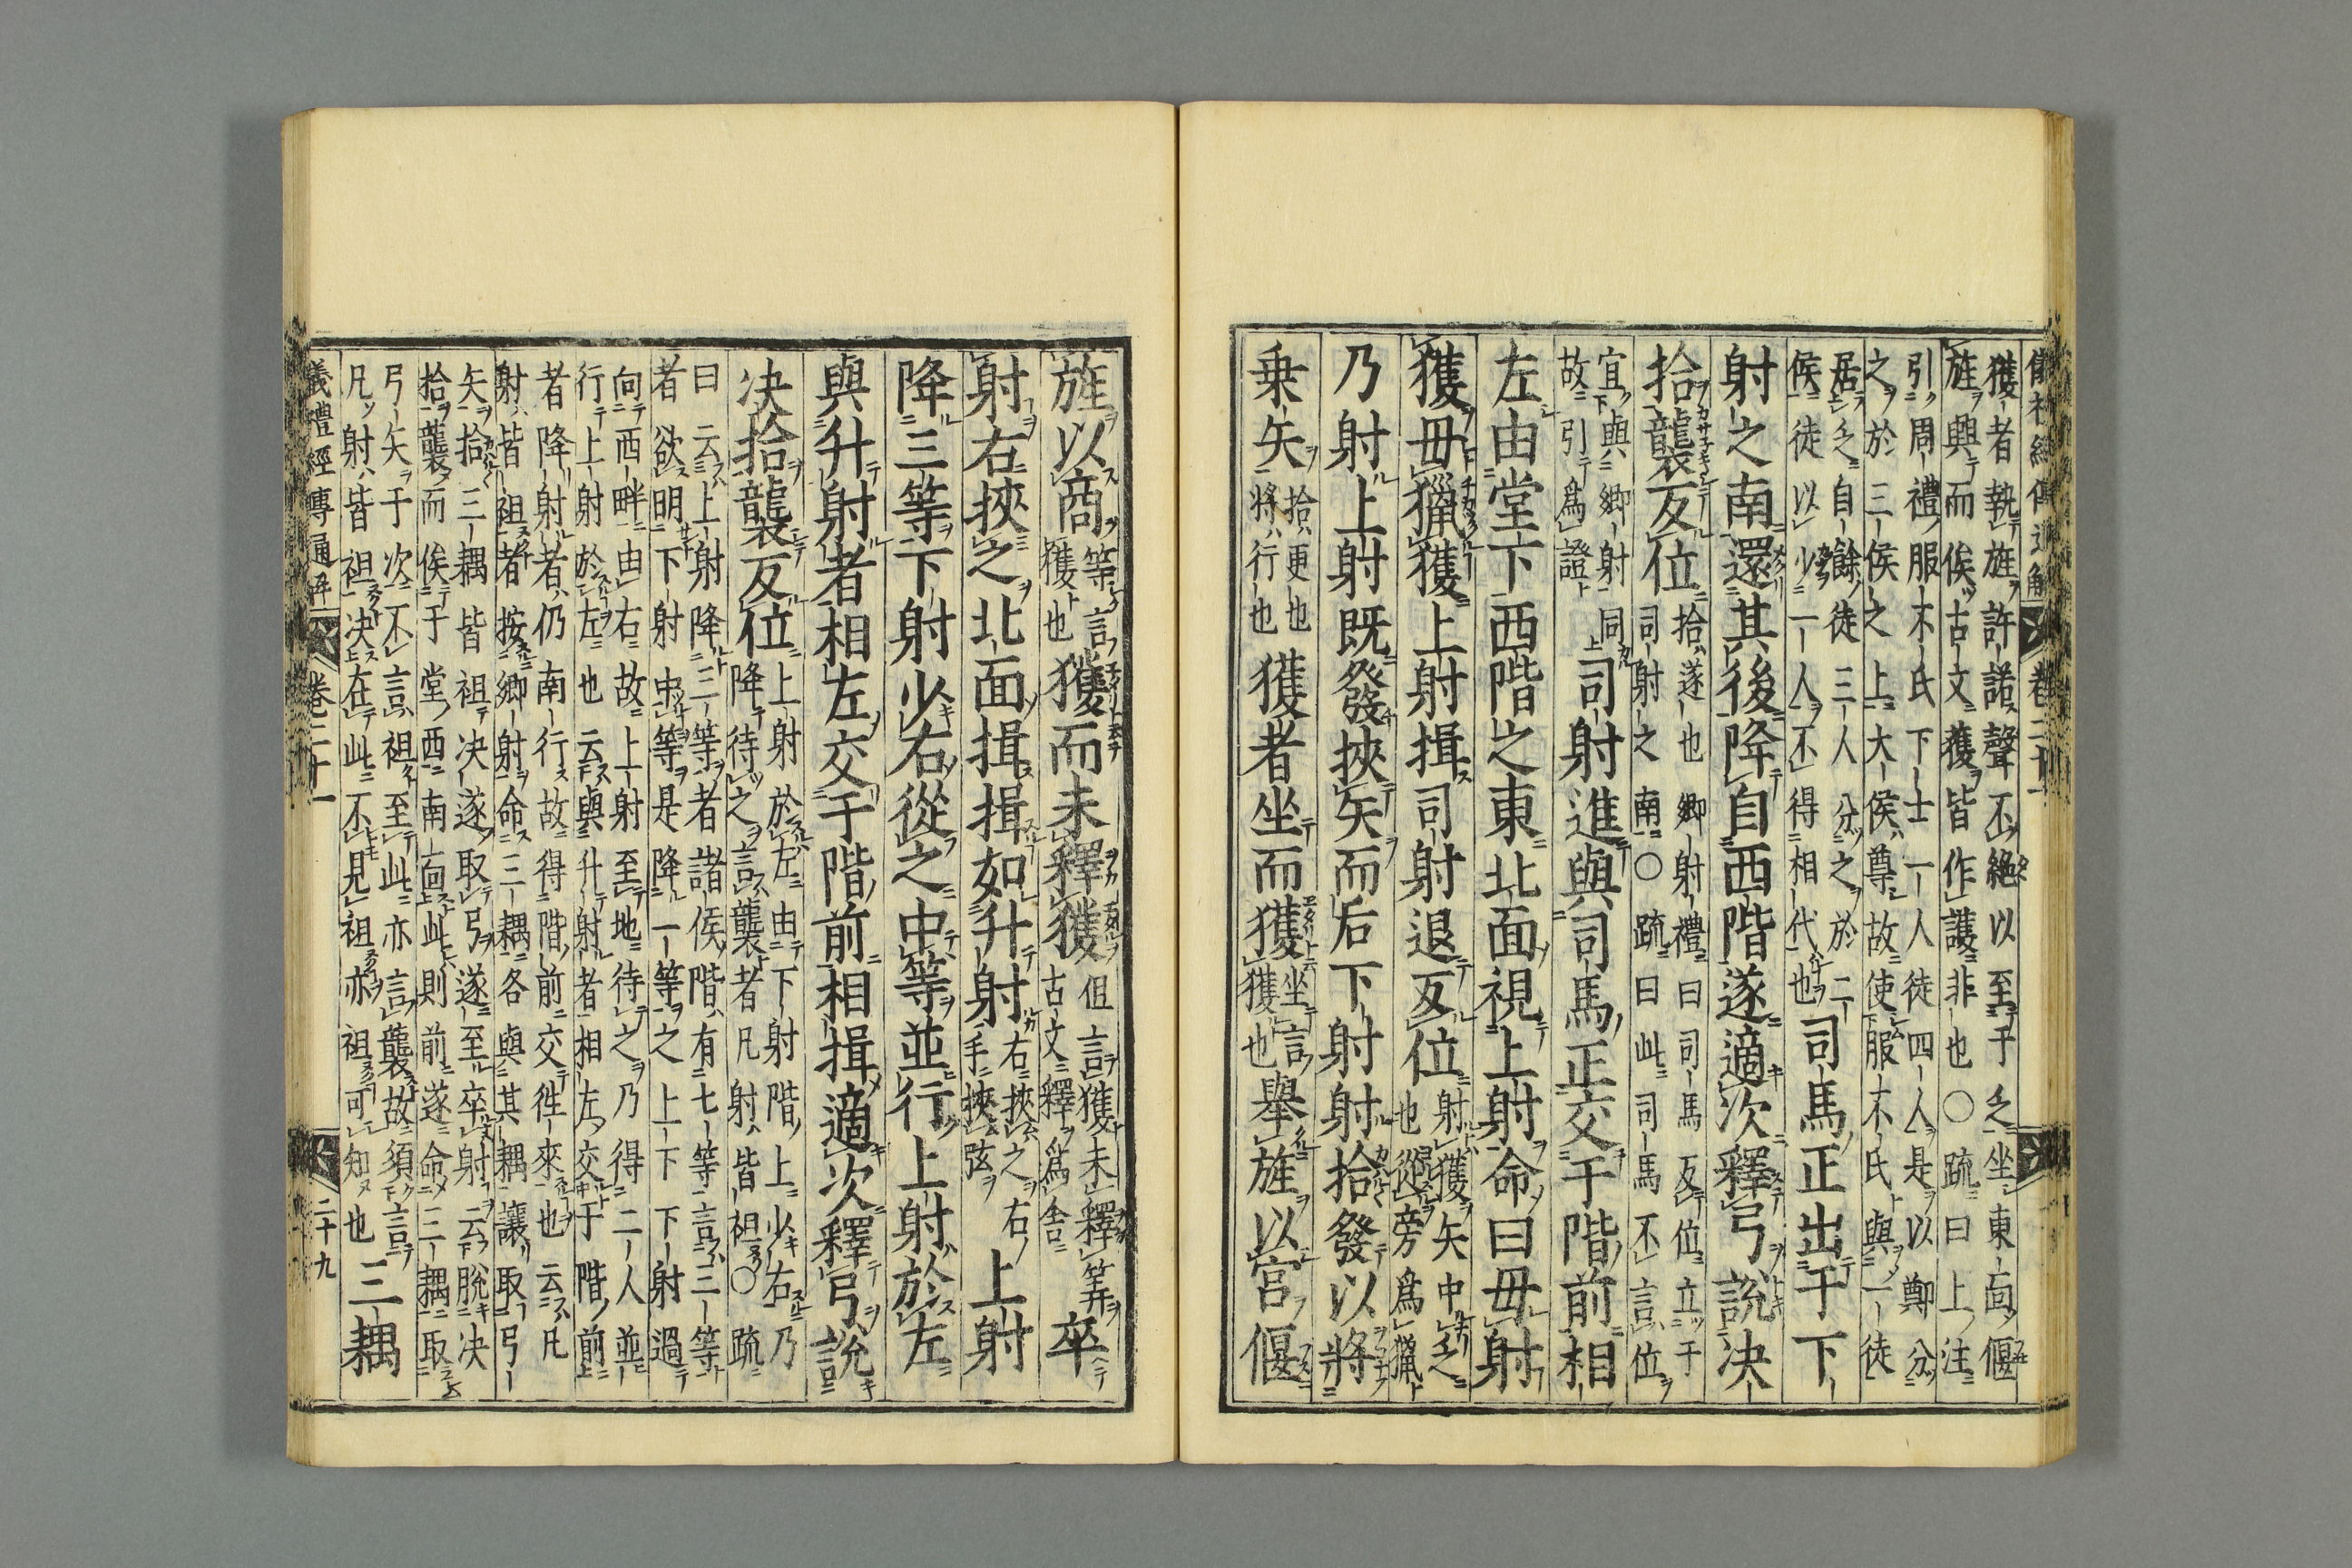 儀禮經傳通解 卷二十
獲者執旌許諾聲不絶以至于乏坐東面偃
旌興而俟古文獲皆作護非也〇疏曰上注
引周禮服不氏下士一人徒四人是以鄭分
之於三侯之上大侯尊故使服不氏與一徒
居乏自餘徒三人分之於二
侯徒以少一人不得相代也司馬正出于下
射之南還其後降自西階遂適次釋弓說决
拾襲反位拾遂也鄉射禮曰司馬反位立于
司射之南〇疏曰此司馬不言位
宜與鄉射同
故引爲證司射進與司馬正交于階前相
左由堂下西階之東北面視上射命曰毋射
獲毋獵獲上射揖司射退反位射獲矢中乏
也從旁爲獵
乃射上射既發挾矢而后下射射拾發以將
乗矢拾更也
將行也獲者坐而獲坐言
獲也舉旌以宮偃
旌以商等言
獲也獲而未釋獲但言獲未釋筭
古文釋爲舍卒
射右挾之北面揖揖如升射右挾之右
手挾弦上射
降三等下射少右從之中等並行上射於左
與升射者相左交于階前相揖適次釋弓說
决拾襲反位上射於左由下射階上少右乃
降待之言襲者凡射皆袒〇疏
曰云上射降三等者諸侯階有七等言三等
者欲明下射中等是降一等之上下下射過
向西畔由右故上射至地待之乃得二人並
行上射於左也云與升射者相左交于階前
者降射者仍南行故得階前交徃來也云凡
射皆袒者按鄉射命三耦各與其耦讓取弓
矢拾三耦皆袒决遂取弓遂至卒射云脫决
拾襲而俟于堂西南面此則前遂命三耦取
弓矢于次不言袒至此亦言襲故須言
凡射皆袒决在此不見袒亦袒可知也三耦
儀禮經傳通解 卷二十一 二十九